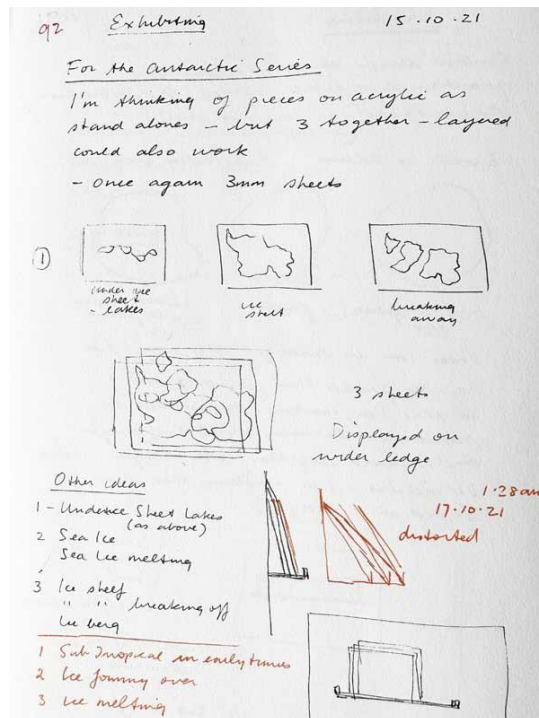 92 Exhibiting 15.10.21
For the Antarctic Series
I'm thinking of pieces on acrylic as
stand alones - but 3 together - layered
could also work
- once again 3mm sheets
1
under ice
sheet
- lakes
ice
shelf
breaking
away
3 sheets
Displayed on
wider ledge
Other ideas
1 - Underice Sheet Lakes
(as above)
2 Sea Ice
Sea Ice melting
3 Ice shelf
" " breaking off
Ice berg
1.28am
17.10.21
distorted
1 Sub Tropical in early times
2 Ice forming over
3 Ice melting